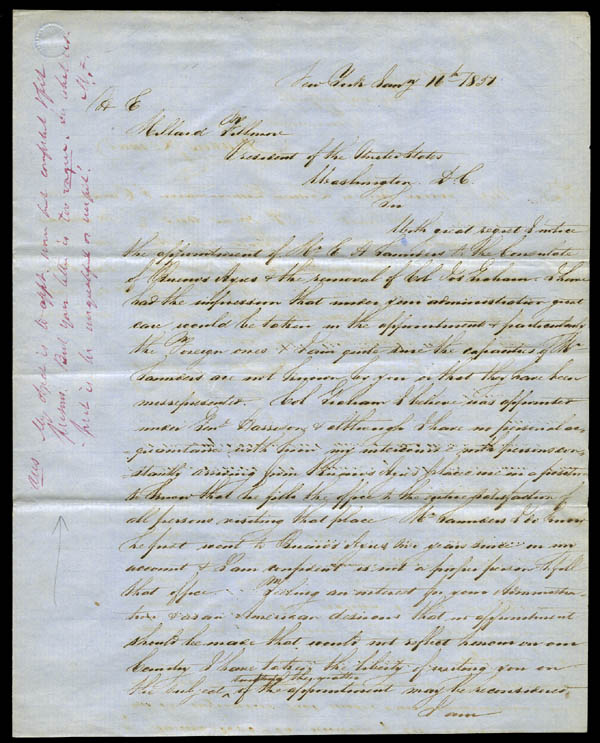 New York Jany 16th 1851
H. E.
Millard Fillmore
President of the United States
Washington D.C.
Sir
With great regret I notice
the appointment of Mr E H Saunders to the Consulate
of Buenos Ayres & the removal of Col Jos Graham. I have
had the impression that under your administration great
care would be taken in the appointments & particularly
the Foreign ones & I am quite sure the capacities of Mr
Saunders are not known by you or that they have been
misrepresented. Col Graham I believe was appointed
under Genl Jackson & although I have no personal ac-
quaintance with him my intercourse with persons con-
stantly arriving from Buenos Ayres places me in a position
to know that he fills the office to the entire satisfaction of
all persons visiting that place Mr Saunders I do know
he first went to Buenos Ayres six years since on my
account & I am confident is not a proper person to fill
that office. Feeling an interest for your Administra-
tion & as an American desirous that no appointment
should be made that would not reflect honour on our
Country I have taken the liberty of writing you on
the subject, trusting the matter of the appointment may be reconsidered
I am
Ans My object is to appt. none but competent & fit
persons. But your letter is too vague. In what res-
pect is he unqualified or unfit? M.F.